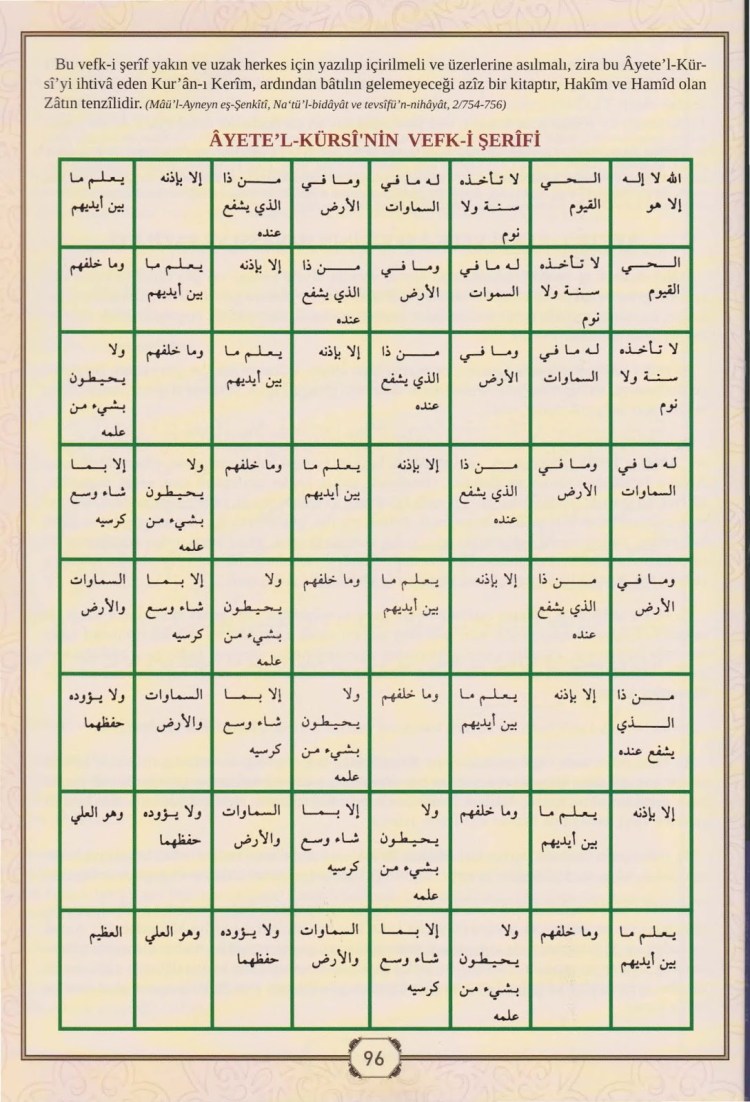 Bu vefk-i şerîf yakın ve uzak herkes için yazılıp içirilmeli ve üzerlerine asılmalı, zira bu Âyete’l-Kür-
sî’yi ihtivâ eden Kur’ân-ı Kerîm, ardından bâtılın gelemeyeceği azîz bir kitaptır, Hakîm ve Hamîd olan
Zâtın tenzîlidir. (Mâü’l-Ayneyn eş-Şenkîtî, Na‘tü’l-bidâyât ve tevsîfü’n-nihâyât, 2/754-756)
ÂYETE’L-KÜRSÎ'NİN VEFK-İ ŞERÎFİ
الله لا إله
إلا هو
الحي
القيوم
لا تأخذه
سنة ولا
نوم
له ما في
السماوات
وما في
الأرض
من ذا
الذي يشفع
عنده
إلا بإذنه
يعلم ما
بين أيديهم
الحي
القيوم
لا تأخذه
سنة ولا
نوم
له ما في
السموات
وما في
الأرض
من ذا
الذي يشفع
عنده
إلا بإذنه
يعلم ما
بين أيديهم
وما خلفهم
لا تأخذه
سنة ولا
نوم
له ما في
السماوات
وما في
الأرض
من ذا
الذي يشفع
عنده
إلا بإذنه
يعلم ما
بين أيديهم
وما خلفهم
ولا
يحيطون
بشيء من
علمه
له ما في
السماوات
وما في
الأرض
من ذا
الذي يشفع
عنده
إلا بإذنه
يعلم ما
بين أيديهم
وما خلفهم
ولا
يحيطون
بشيء من
علمه
إلا بما
شاء وسع
كرسيه
وما في
الأرض
من ذا
الذي يشفع
عنده
إلا بإذنه
يعلم ما
بين أيديهم
وما خلفهم
ولا
يحيطون
بشيء من
علمه
إلا بما
شاء وسع
كرسيه
السماوات
والأرض
من ذا
الذي
يشفع عنده
إلا بإذنه
يعلم ما
بين أيديهم
وما خلفهم
ولا
يحيطون
بشيء من
علمه
إلا بما
شاء وسع
كرسيه
السماوات
والأرض
ولا يؤوده
حفظهما
إلا بإذنه
يعلم ما
بين أيديهم
وما خلفهم
ولا
يحيطون
بشيء من
علمه
إلا بما
شاء وسع
كرسيه
السماوات
والأرض
ولا يؤوده
حفظهما
وهو العلي
يعلم ما
بين أيديهم
وما خلفهم
ولا
يحيطون
بشيء من
علمه
إلا بما
شاء وسع
كرسيه
السماوات
والأرض
ولا يؤوده
حفظهما
وهو العلي
العظيم
96